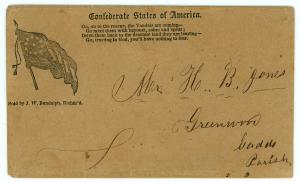 Confederate States of America.
On, on to the rescue, the Vandals are coming—
Go meet them with bayonet, sabre and spear;
Drive them back to the desolate land they are leaving—
Go, trusting in God, you'll have nothing to fear.
Sold by J. W. Randolph, Richm'd.
H. B. Jones
Greenwood
Caddo
Parish